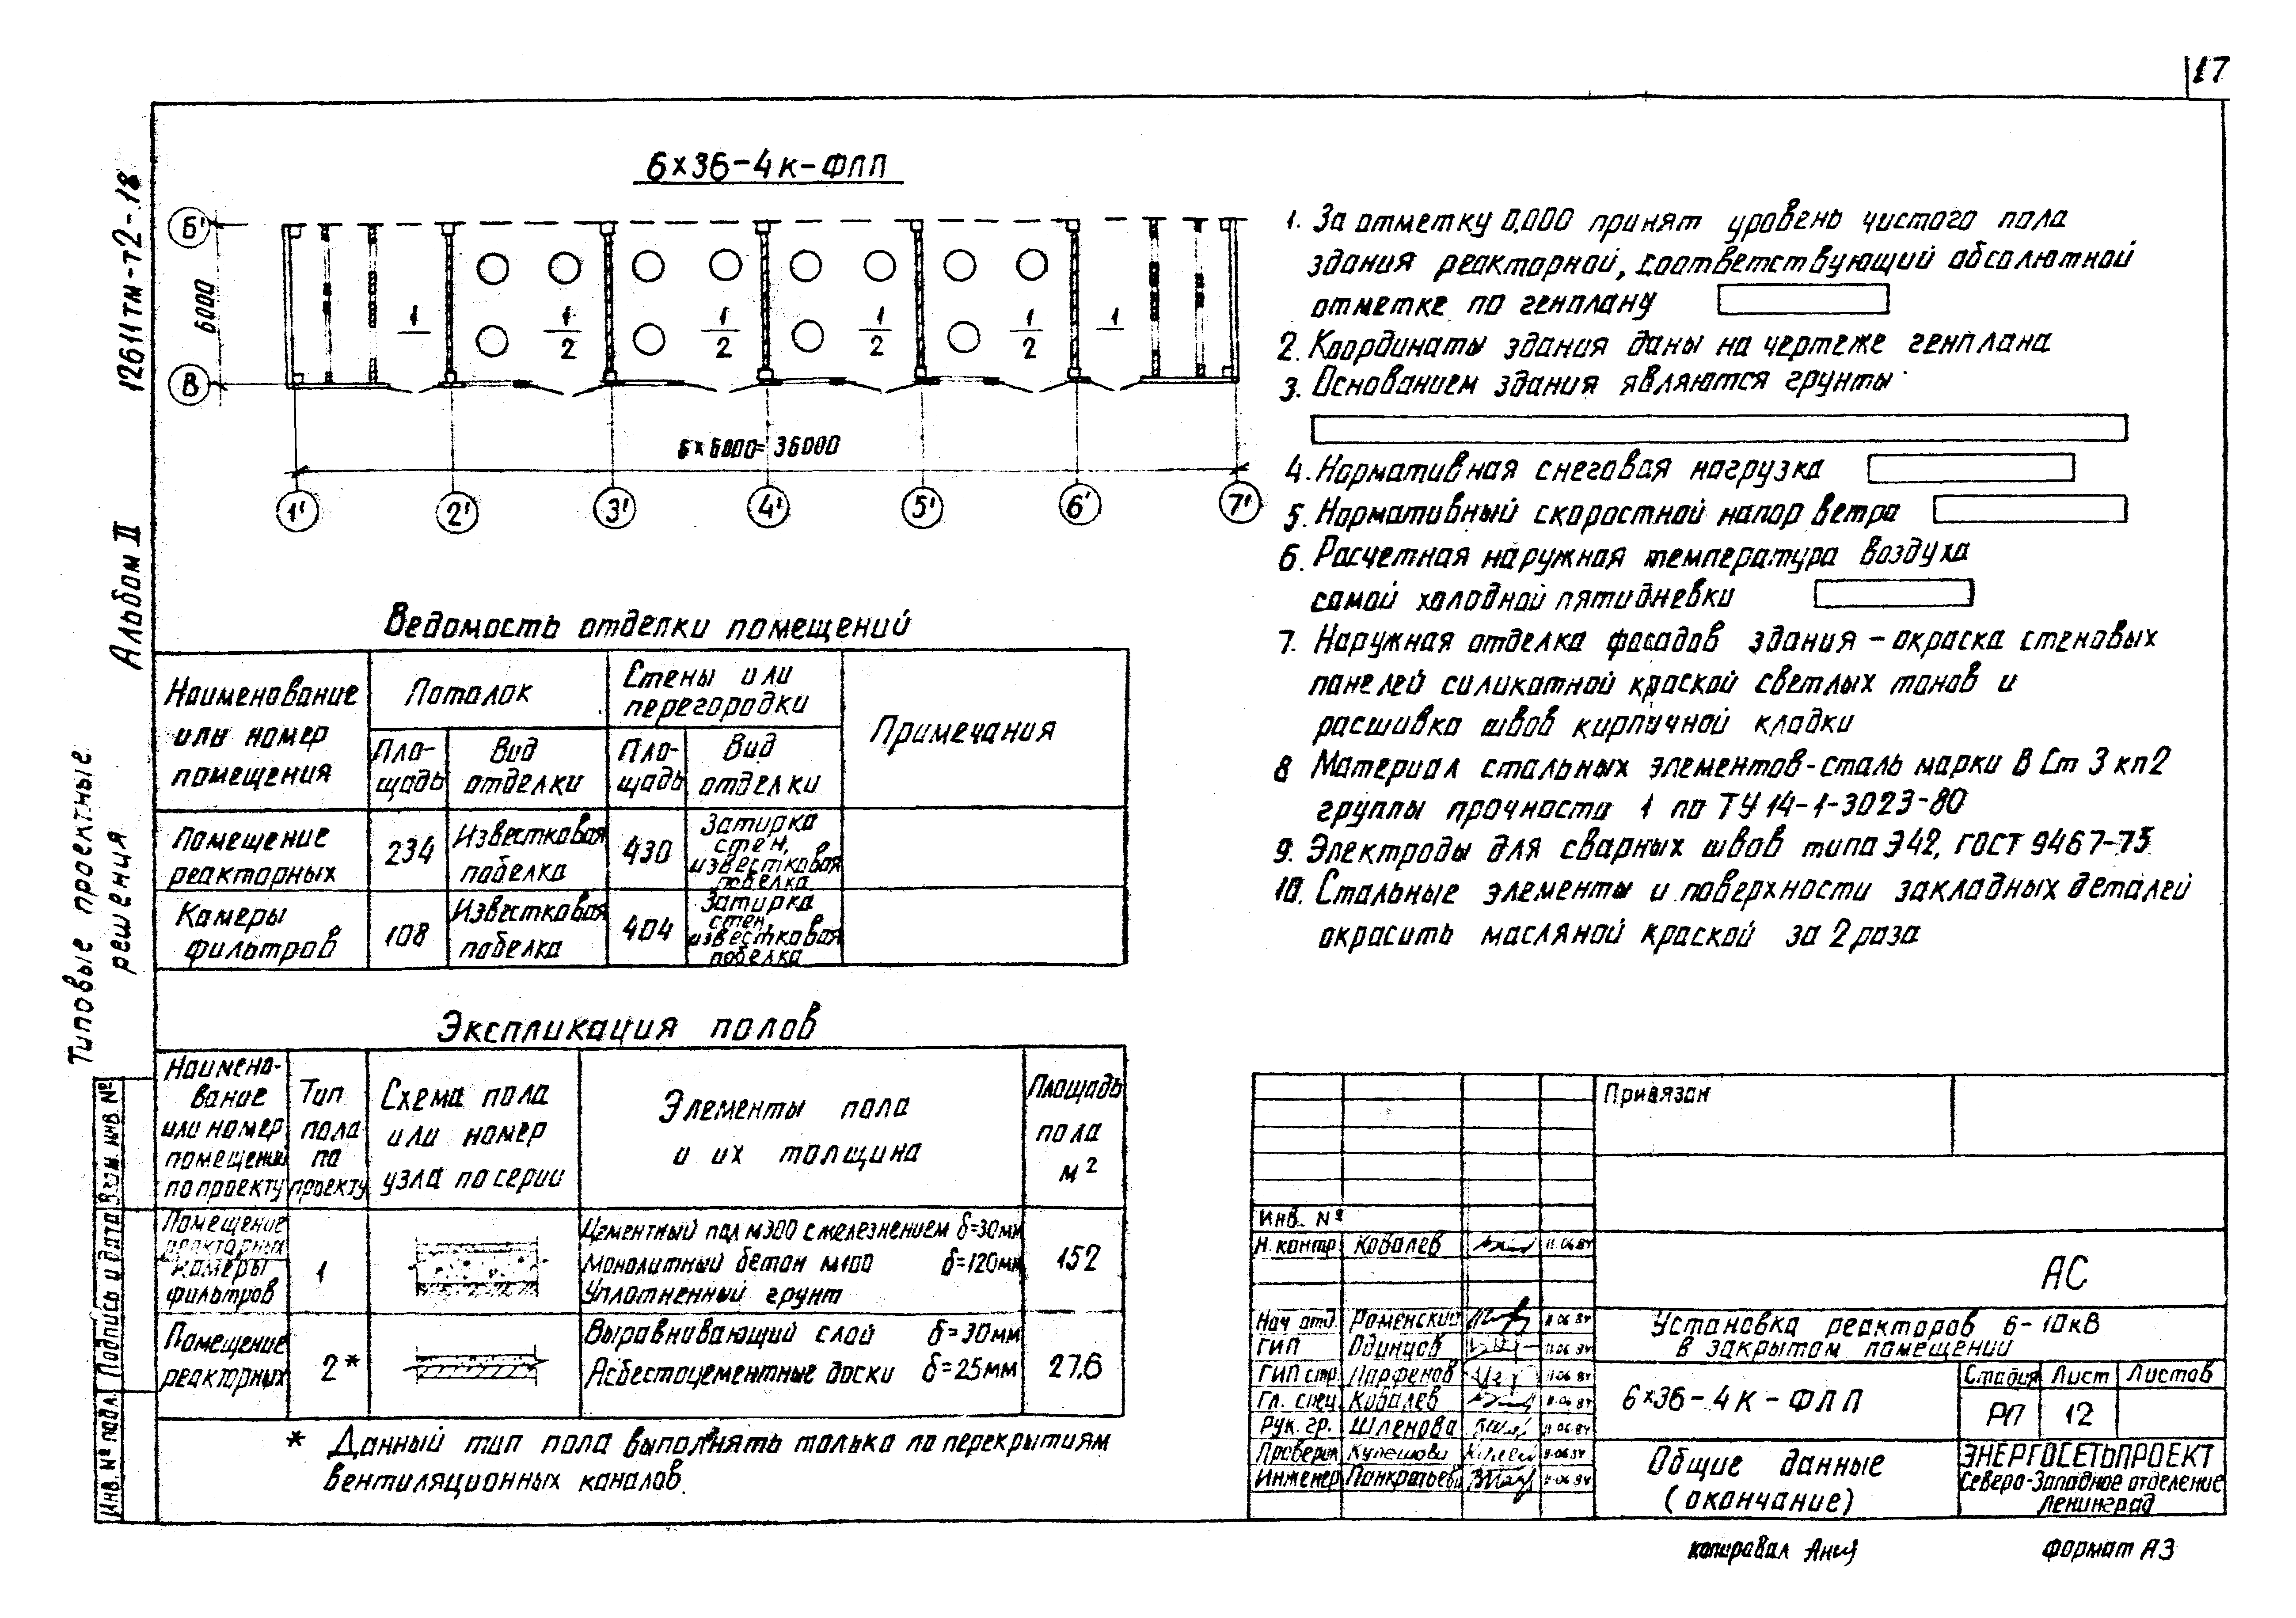 17
12611тм-т2-18
Альбом II
Типовые проектные
решения
6×36-4к-ФЛП
Б'
В
6000
1
1
2
1
2
1
2
1
2
1
6×6000=36000
1'
2'
3'
4'
5'
6'
7'
1. За отметку 0.000 принят уровень чистого пола
здания реакторной, соответствующий абсолютной
отметке по генплану
2. Координаты здания даны на чертеже генплана
3. Основанием здания являются грунты
4. Нормативная снеговая нагрузка
5. Нормативный скоростной напор ветра
6. Расчетная наружная температура воздуха
самой холодной пятидневки
7. Наружная отделка фасадов здания - окраска стеновых
панелей силикатной краской светлых тонов и
расшивка швов кирпичной кладки
8 Материал стальных элементов-сталь марки В Ст 3 кп2
группы прочности 1 по ТУ 14-1-3023-80
9. Электроды для сварных швов типа Э42, ГОСТ 9467-75.
10. Стальные элементы и поверхности закладных деталей
окрасить масляной краской за 2 раза
Ведомость отделки помещений
Наименование
или номер
помещения
Потолок
Стены или
перегородки
Примечания
Пло-
щадь
Вид
отделки
Пло-
щадь
Вид
отделки
Помещение
реакторных
234
Известковая
побелка
430
Затирка
стен,
известковая
побелка
Камеры
фильтров
108
Известковая
побелка
404
Затирка
стен,
известковая
побелка
Экспликация полов
Наимено-
вание
или номер
помещения
по проекту
Тип
пола
по
проекту
Схема пола
или номер
узла по серии
Элементы пола
и их толщина
Площадь
пола
м²
Помещение
реакторных
Камеры
фильтров
1
Цементный пол М300 с железнением δ=30мм
Монолитный бетон М100 δ=120мм
Уплотненный грунт
152
Помещение
реакторных
2*
Выравнивающий слой δ=30мм
Асбестоцементные доски δ=25мм
27.6
* Данный тип пола выполнять только по перекрытиям
вентиляционных каналов.
Взам. инв №
Подпись и дата
Инв. № подл.
Привязан
Инв. №
Н. контр. Ковалев 11.06.84
Нач отд. Роменский 11.06.84
ГИП Одинцов 11.06.84
ГИП стр. Парфенов 11.06.84
Гл. спец Ковалев 11.06.84
Рук. гр. Шленова 11.06.84
Проверил Кулешова 11.06.84
Инженер Панкратьева 11.06.84
АС
Установка реакторов 6-10кВ
в закрытом помещении
6×36-4К-ФЛП
Стадия Лист Листов
РП 12
Общие данные
(окончание)
ЭНЕРГОСЕТЬПРОЕКТ
Северо-Западное отделение
Ленинград
копировал
Формат А3